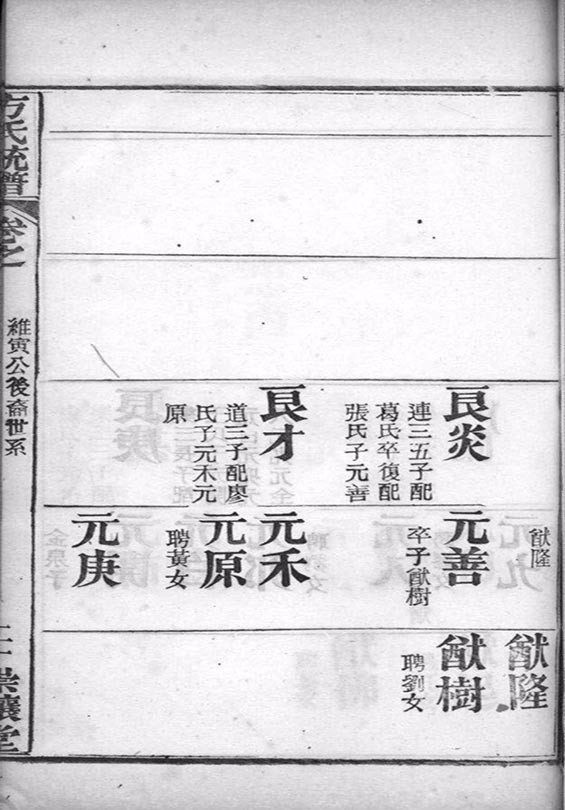 良炎
連三五子配
葛氏卒復配
張氏子元善
良才
道三子配廖
氏子元禾元
原
猷隆
元善
卒子猷樹
元禾
元原
聘黃女
元庚
猷隆
猷樹
聘劉女
方氏統譜
卷之
維寅公後裔世系
讓堂